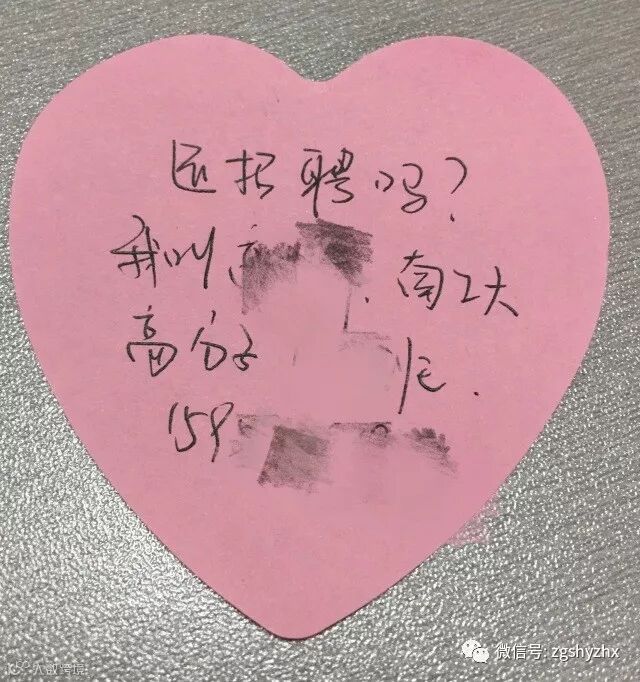 还招聘吗?
我叫 . 南工大
高分子 
159
微信号: zgshyzhx
大数跨境